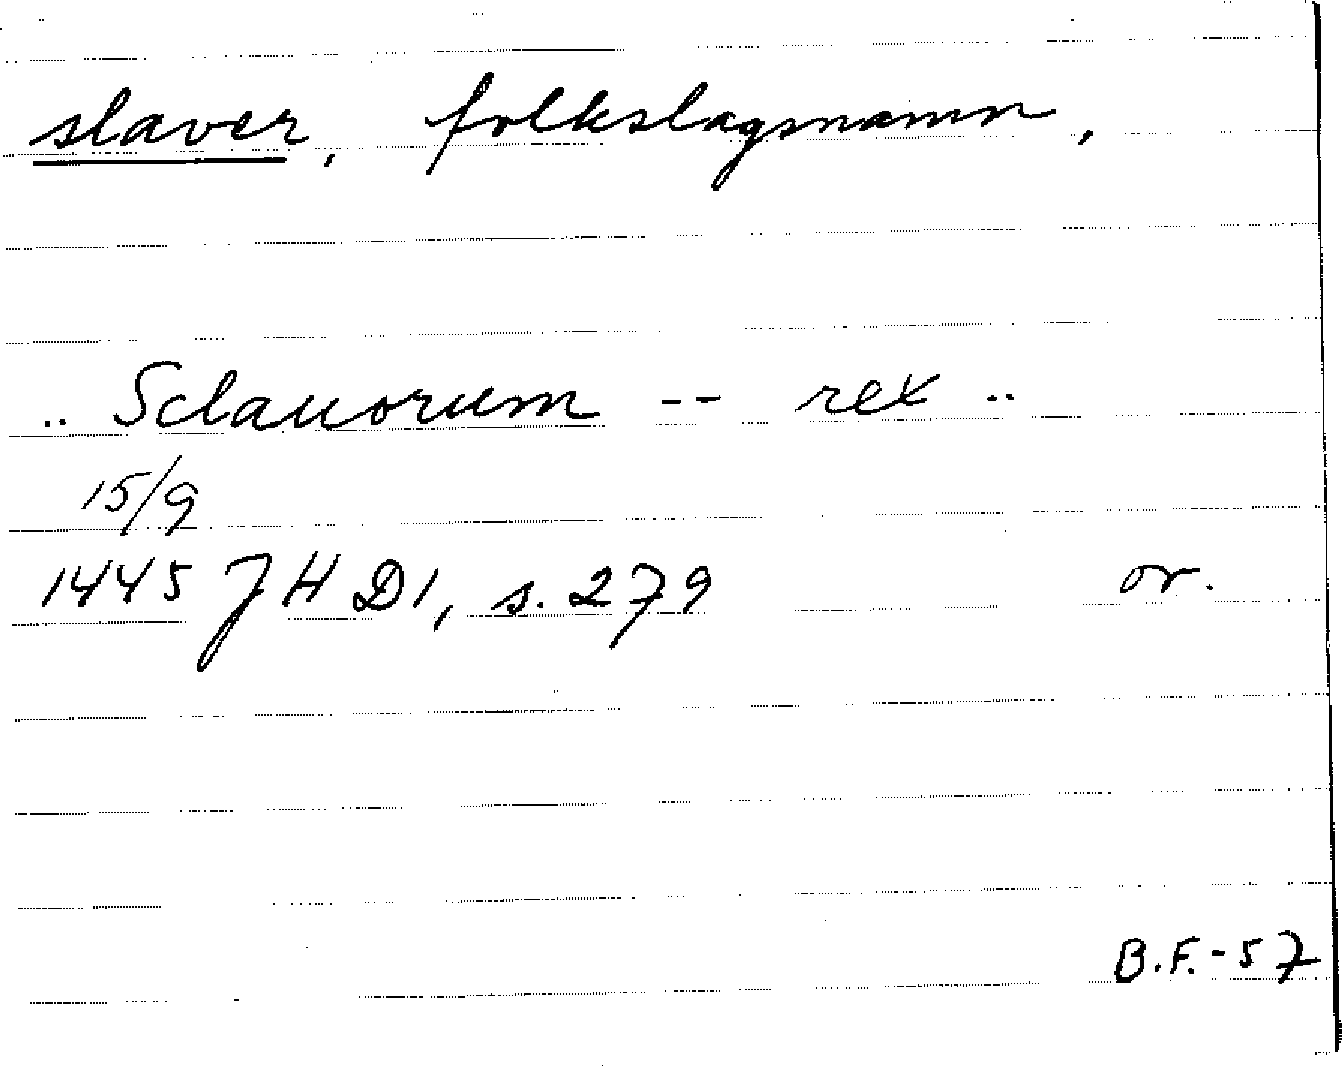 slaver, folkslagsnamn,
.. Sclauorum -- rex ..
15/9
1445 JHD1, s. 279 or.
B.F.-57